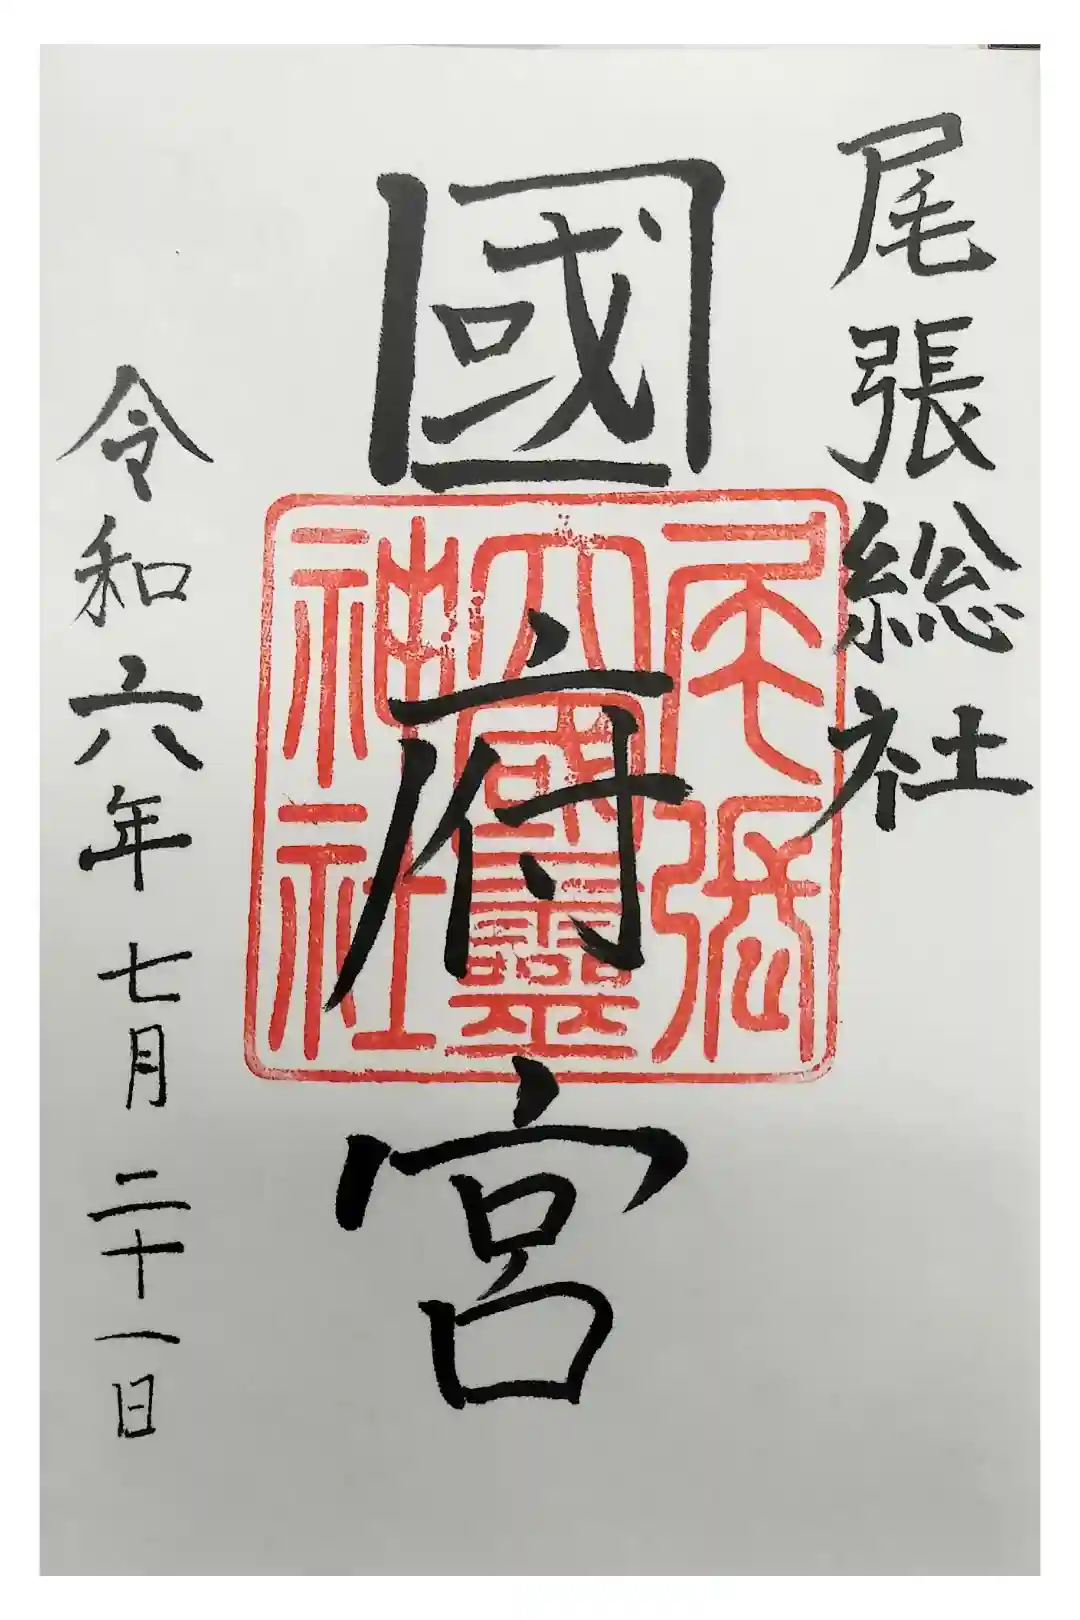 尾張総社
國府宮
尾張
大國霊
神社
令和六年七月二十一日